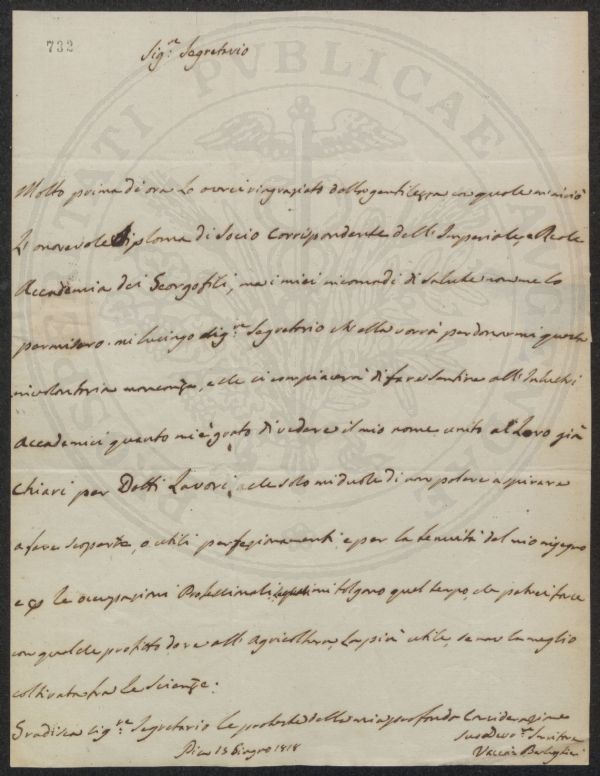 732
Sig.re Segretario
Molto prima di ora Lo avrei ringraziato della gentilezza con quale m'inviò
L'onorevole Diploma di Socio Corrispondente dell'Imperiale, e Reale
Accademia dei Georgofili, ma i miei incomodi di salute non me lo
permisero. mi lusingo Sig.re Segretario ch'ella vorrà perdonarmi questa
involontaria mancanza, e che si compiacerà di fare sentire all'
Accademici quanto mi è grato di vedere il mio nome unito al Loro già
Chiari per Dotti Lavori, e che solo mi duole di non potere aspirare
a fare scoperte, o utili perfezionamenti e per la tenuità del mio ingegno
e le occupazioni Professionali mi tolgano quel tempo, che potrei forse
con qualche profitto dare all'Agricoltura, la più utile, se non la meglio
coltivata tra le Scienze.
Gradisca Sig.re Segretario le proteste della mia profonda Considerazione
Pisa 15 Giugno 1818
Suo Dev.mo Servitore
Vaccà Berlinghieri
PROSPERITATI PUBLICAE AUGENDAE